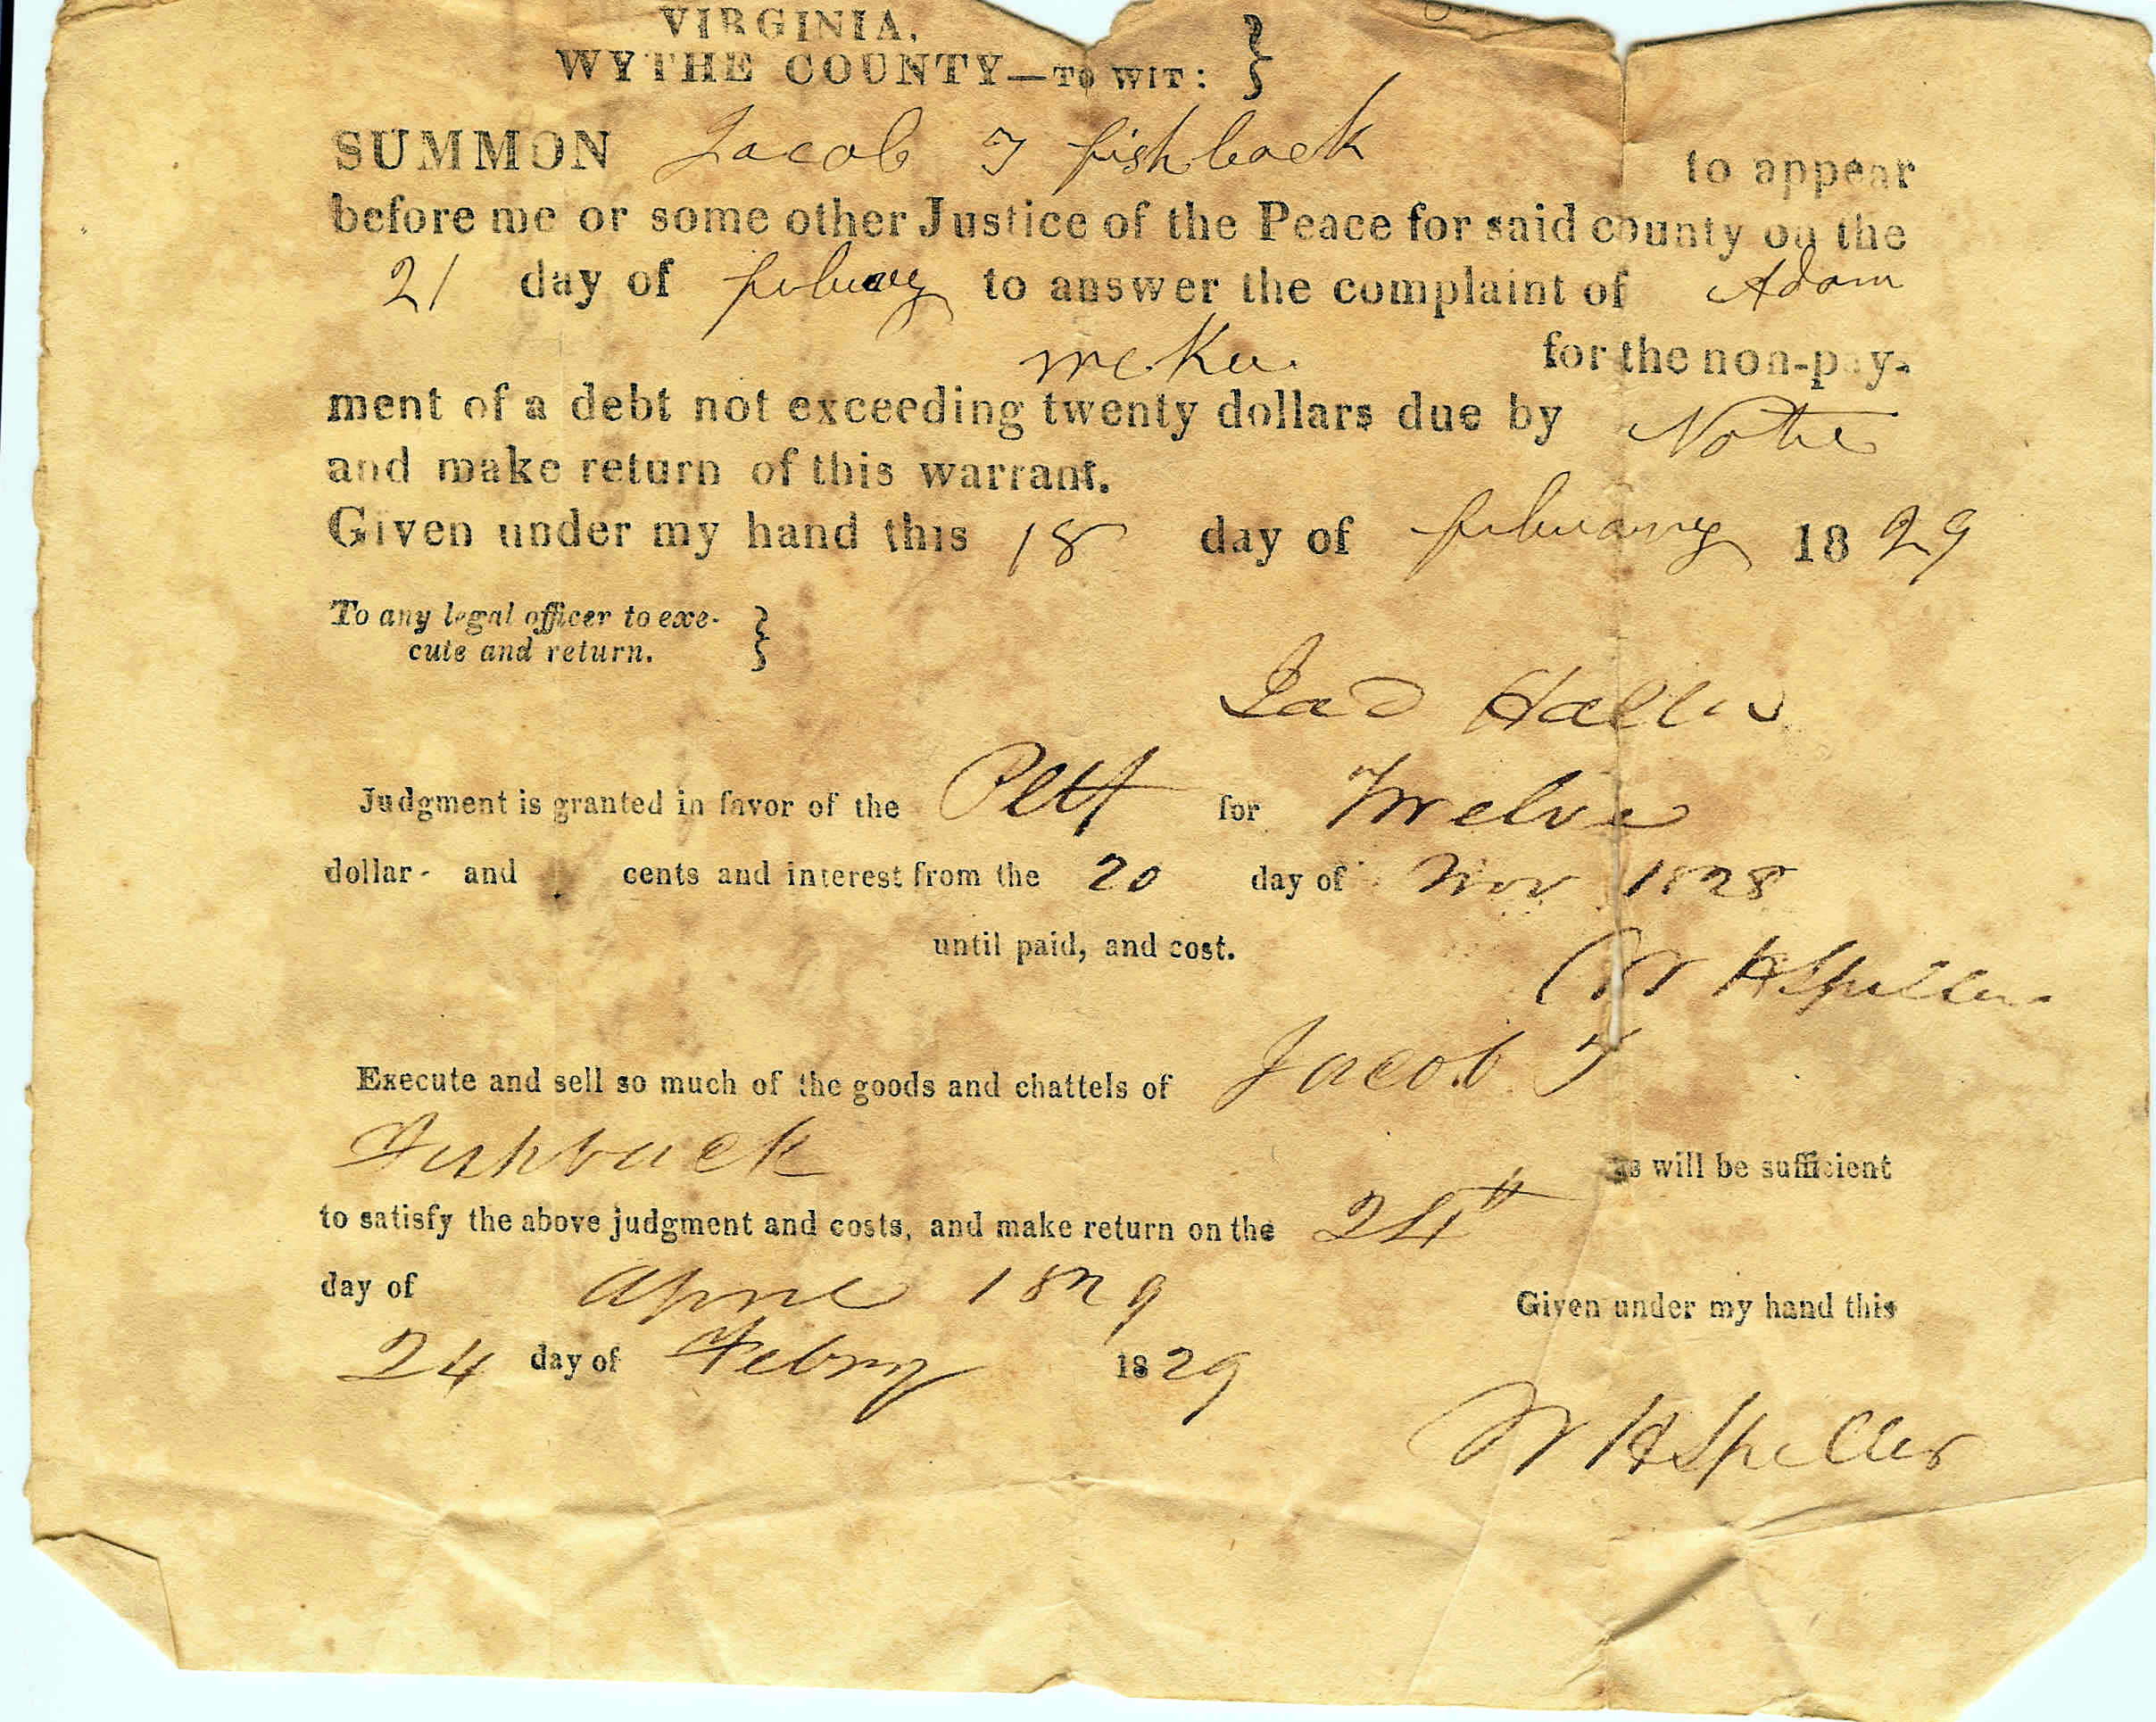 VIRGINIA,
WYTHE COUNTY—TO WIT: }
SUMMON Jacob T fishback to appear
before me or some other Justice of the Peace for said county on the
21 day of february to answer the complaint of Adam
McKee for the non-pay-
ment of a debt not exceeding twenty dollars due by Note
and make return of this warrant.
Given under my hand this 18 day of february 1829
To any legal officer to exe-
cute and return. }
Judgment is granted in favor of the Pltf for Twelve
dollar- and cents and interest from the 20 day of Nov 1828
until paid, and cost.
W H Spiller
Execute and sell so much of the goods and chattels of Jacob T
Fishback as will be sufficient
to satisfy the above judgment and costs, and make return on the 24th
day of April 1829 Given under my hand this
24 day of Febry 1829
W H Spiller